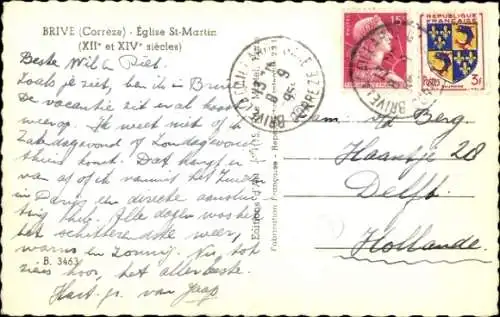 BRIVE (Corrèze) - Église St-Martin
(XIIe et XIVe siècles)
Beste Wil & Piet.
Zoals je ziet, ben ik in Brive
De vacantie zit er al haast
weer op. Ik weet niet of ik
Zaterdagavond of Zondagavond
thuis komt. Dat hangt er
van af of ik vanuit het Zuiden
in Parijs een directe aansluiting
thuis. Alle dagen was het
het schitterende weer,
warm en zonnig. Nu, tot
ziens hoor, het allerbeste.
B. 3463
Hart. gr. van Jaap
Fabrication Française
15F
RÉPUBLIQUE
FRANÇAISE
POSTES
3F
BRIVE
CORREZE
Fam. v/d Berg
Haantje 28
Delft.
Hollande.